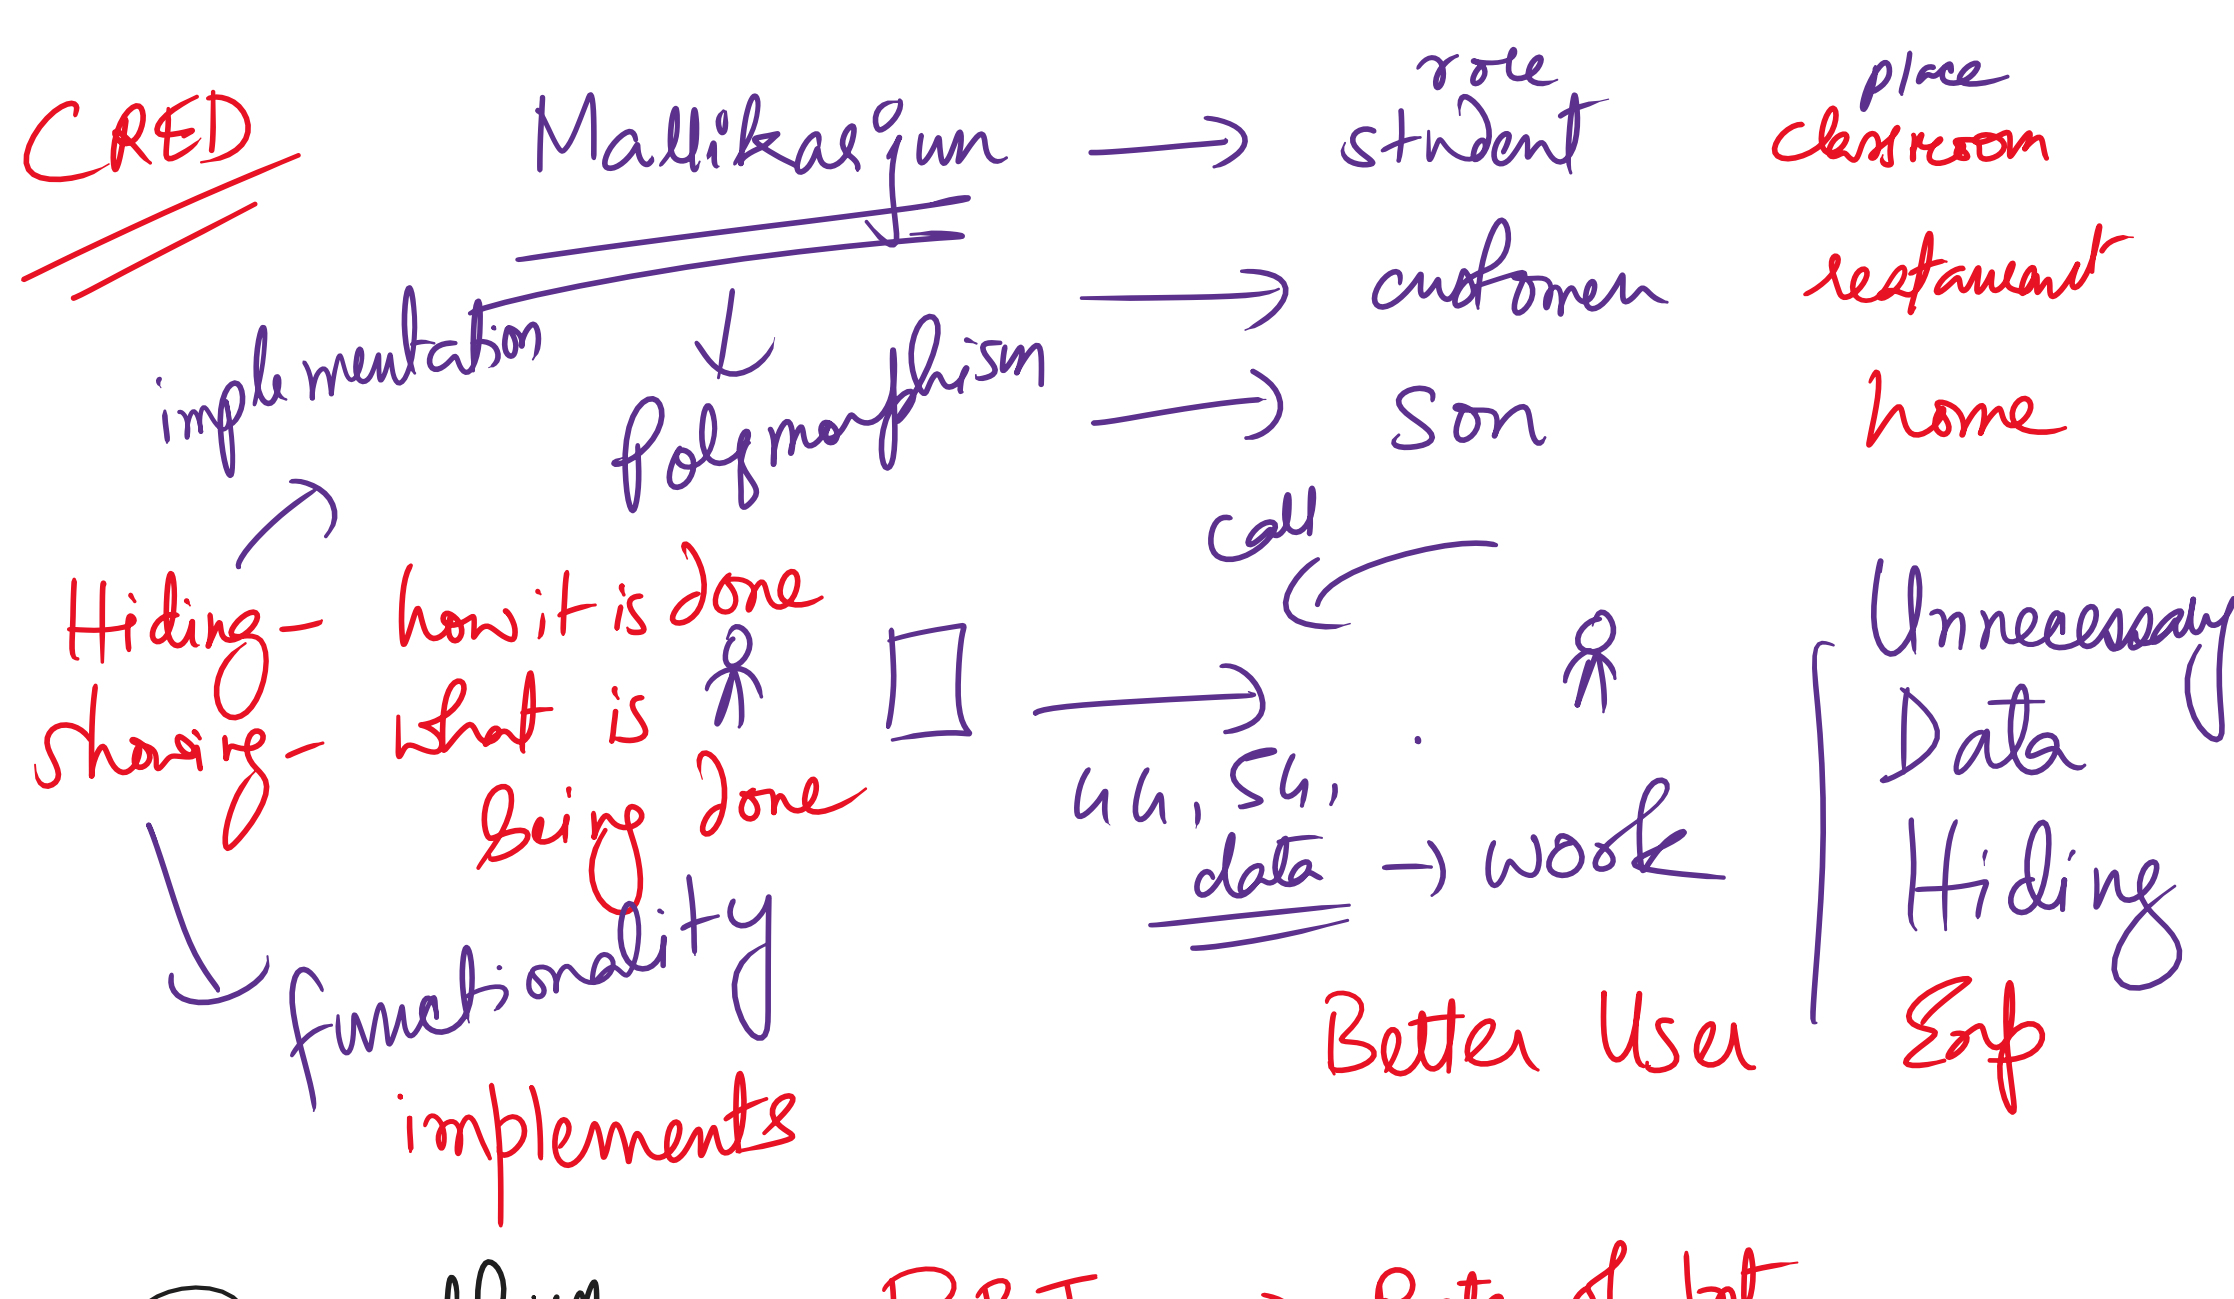 CRED
Mallikarjun → role place
student classroom
→ customer restaurant
→ son home
implementation
Polymorphism
call
Hiding - how it is done
showing - what is
being done
functionality
implements
4G, 5G,
data → work
Unnecessary
Data
Hiding
Better User Exp